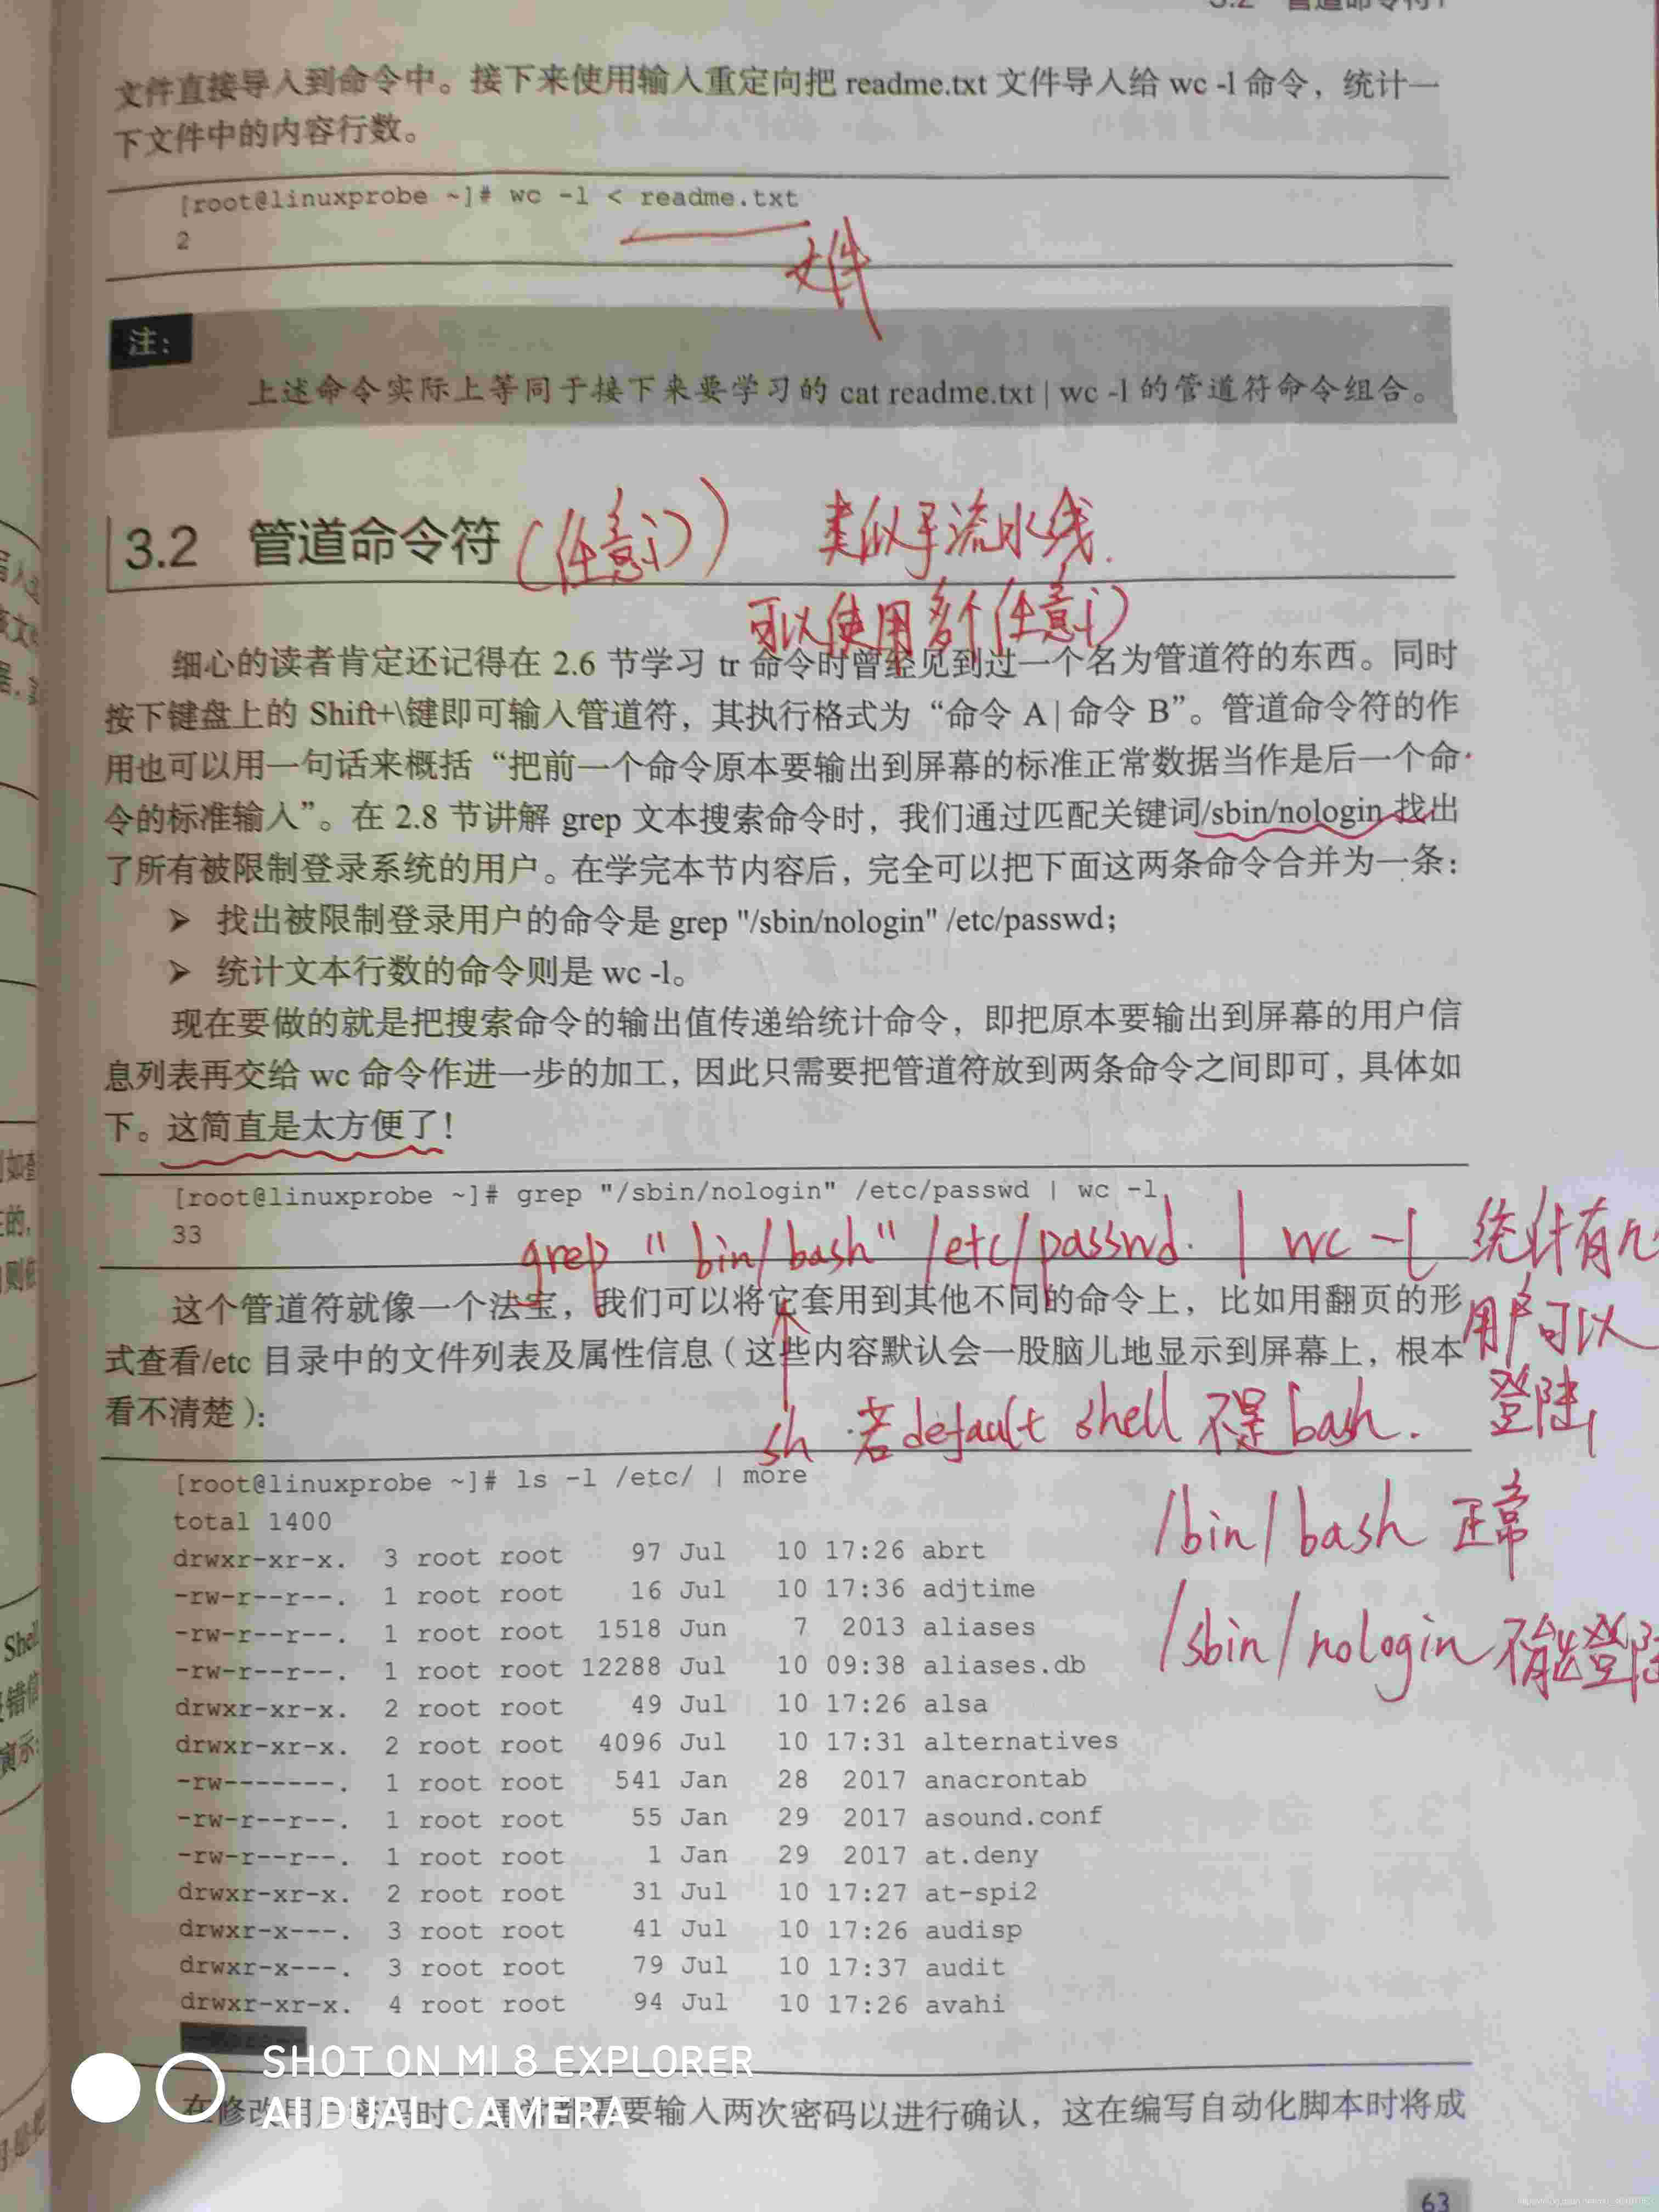 3.2 管道命令符
文件直接导入到命令中。接下来使用输入重定向把 readme.txt 文件导入给 wc -l 命令，统计一
下文件中的内容行数。
[root@linuxprobe ~]# wc -l < readme.txt
2
文件
注：
上述命令实际上等同于接下来要学习的 cat readme.txt | wc -l 的管道符命令组合。
3.2 管道命令符 (任意门) 类似于流水线.
可以使用多个任意门
细心的读者肯定还记得在 2.6 节学习 tr 命令时曾经见到过一个名为管道符的东西。同时
按下键盘上的 Shift+\键即可输入管道符，其执行格式为“命令 A | 命令 B”。管道命令符的作
用也可以用一句话来概括“把前一个命令原本要输出到屏幕的标准正常数据当作是后一个命
令的标准输入”。在 2.8 节讲解 grep 文本搜索命令时，我们通过匹配关键词/sbin/nologin 找出
了所有被限制登录系统的用户。在学完本节内容后，完全可以把下面这两条命令合并为一条：
➢ 找出被限制登录用户的命令是 grep "/sbin/nologin" /etc/passwd；
➢ 统计文本行数的命令则是 wc -l。
现在要做的就是把搜索命令的输出值传递给统计命令，即把原本要输出到屏幕的用户信
息列表再交给 wc 命令作进一步的加工，因此只需要把管道符放到两条命令之间即可，具体如
下。这简直是太方便了！
[root@linuxprobe ~]# grep "/sbin/nologin" /etc/passwd | wc -l
33
grep "bin/bash" /etc/passwd. | wc -l 统计有几
用户可以
登陆
这个管道符就像一个法宝，我们可以将它套用到其他不同的命令上，比如用翻页的形
式查看/etc 目录中的文件列表及属性信息（这些内容默认会一股脑儿地显示到屏幕上，根本
看不清楚）：
sh 若default shell 不是bash.
[root@linuxprobe ~]# ls -l /etc/ | more
total 1400
/bin/bash 正常
/sbin/nologin 不能登陆
drwxr-xr-x. 3 root root 97 Jul 10 17:26 abrt
-rw-r--r--. 1 root root 16 Jul 10 17:36 adjtime
-rw-r--r--. 1 root root 1518 Jun 7 2013 aliases
-rw-r--r--. 1 root root 12288 Jul 10 09:38 aliases.db
drwxr-xr-x. 2 root root 49 Jul 10 17:26 alsa
drwxr-xr-x. 2 root root 4096 Jul 10 17:31 alternatives
-rw-------. 1 root root 541 Jan 28 2017 anacrontab
-rw-r--r--. 1 root root 55 Jan 29 2017 asound.conf
-rw-r--r--. 1 root root 1 Jan 29 2017 at.deny
drwxr-xr-x. 2 root root 31 Jul 10 17:27 at-spi2
drwxr-x---. 3 root root 41 Jul 10 17:26 audisp
drwxr-x---. 3 root root 79 Jul 10 17:37 audit
drwxr-xr-x. 4 root root 94 Jul 10 17:26 avahi
SHOT ON MI 8 EXPLORER
AI DUAL CAMERA
在修改用户密码时，通常都需要输入两次密码以进行确认，这在编写自动化脚本时将成
63